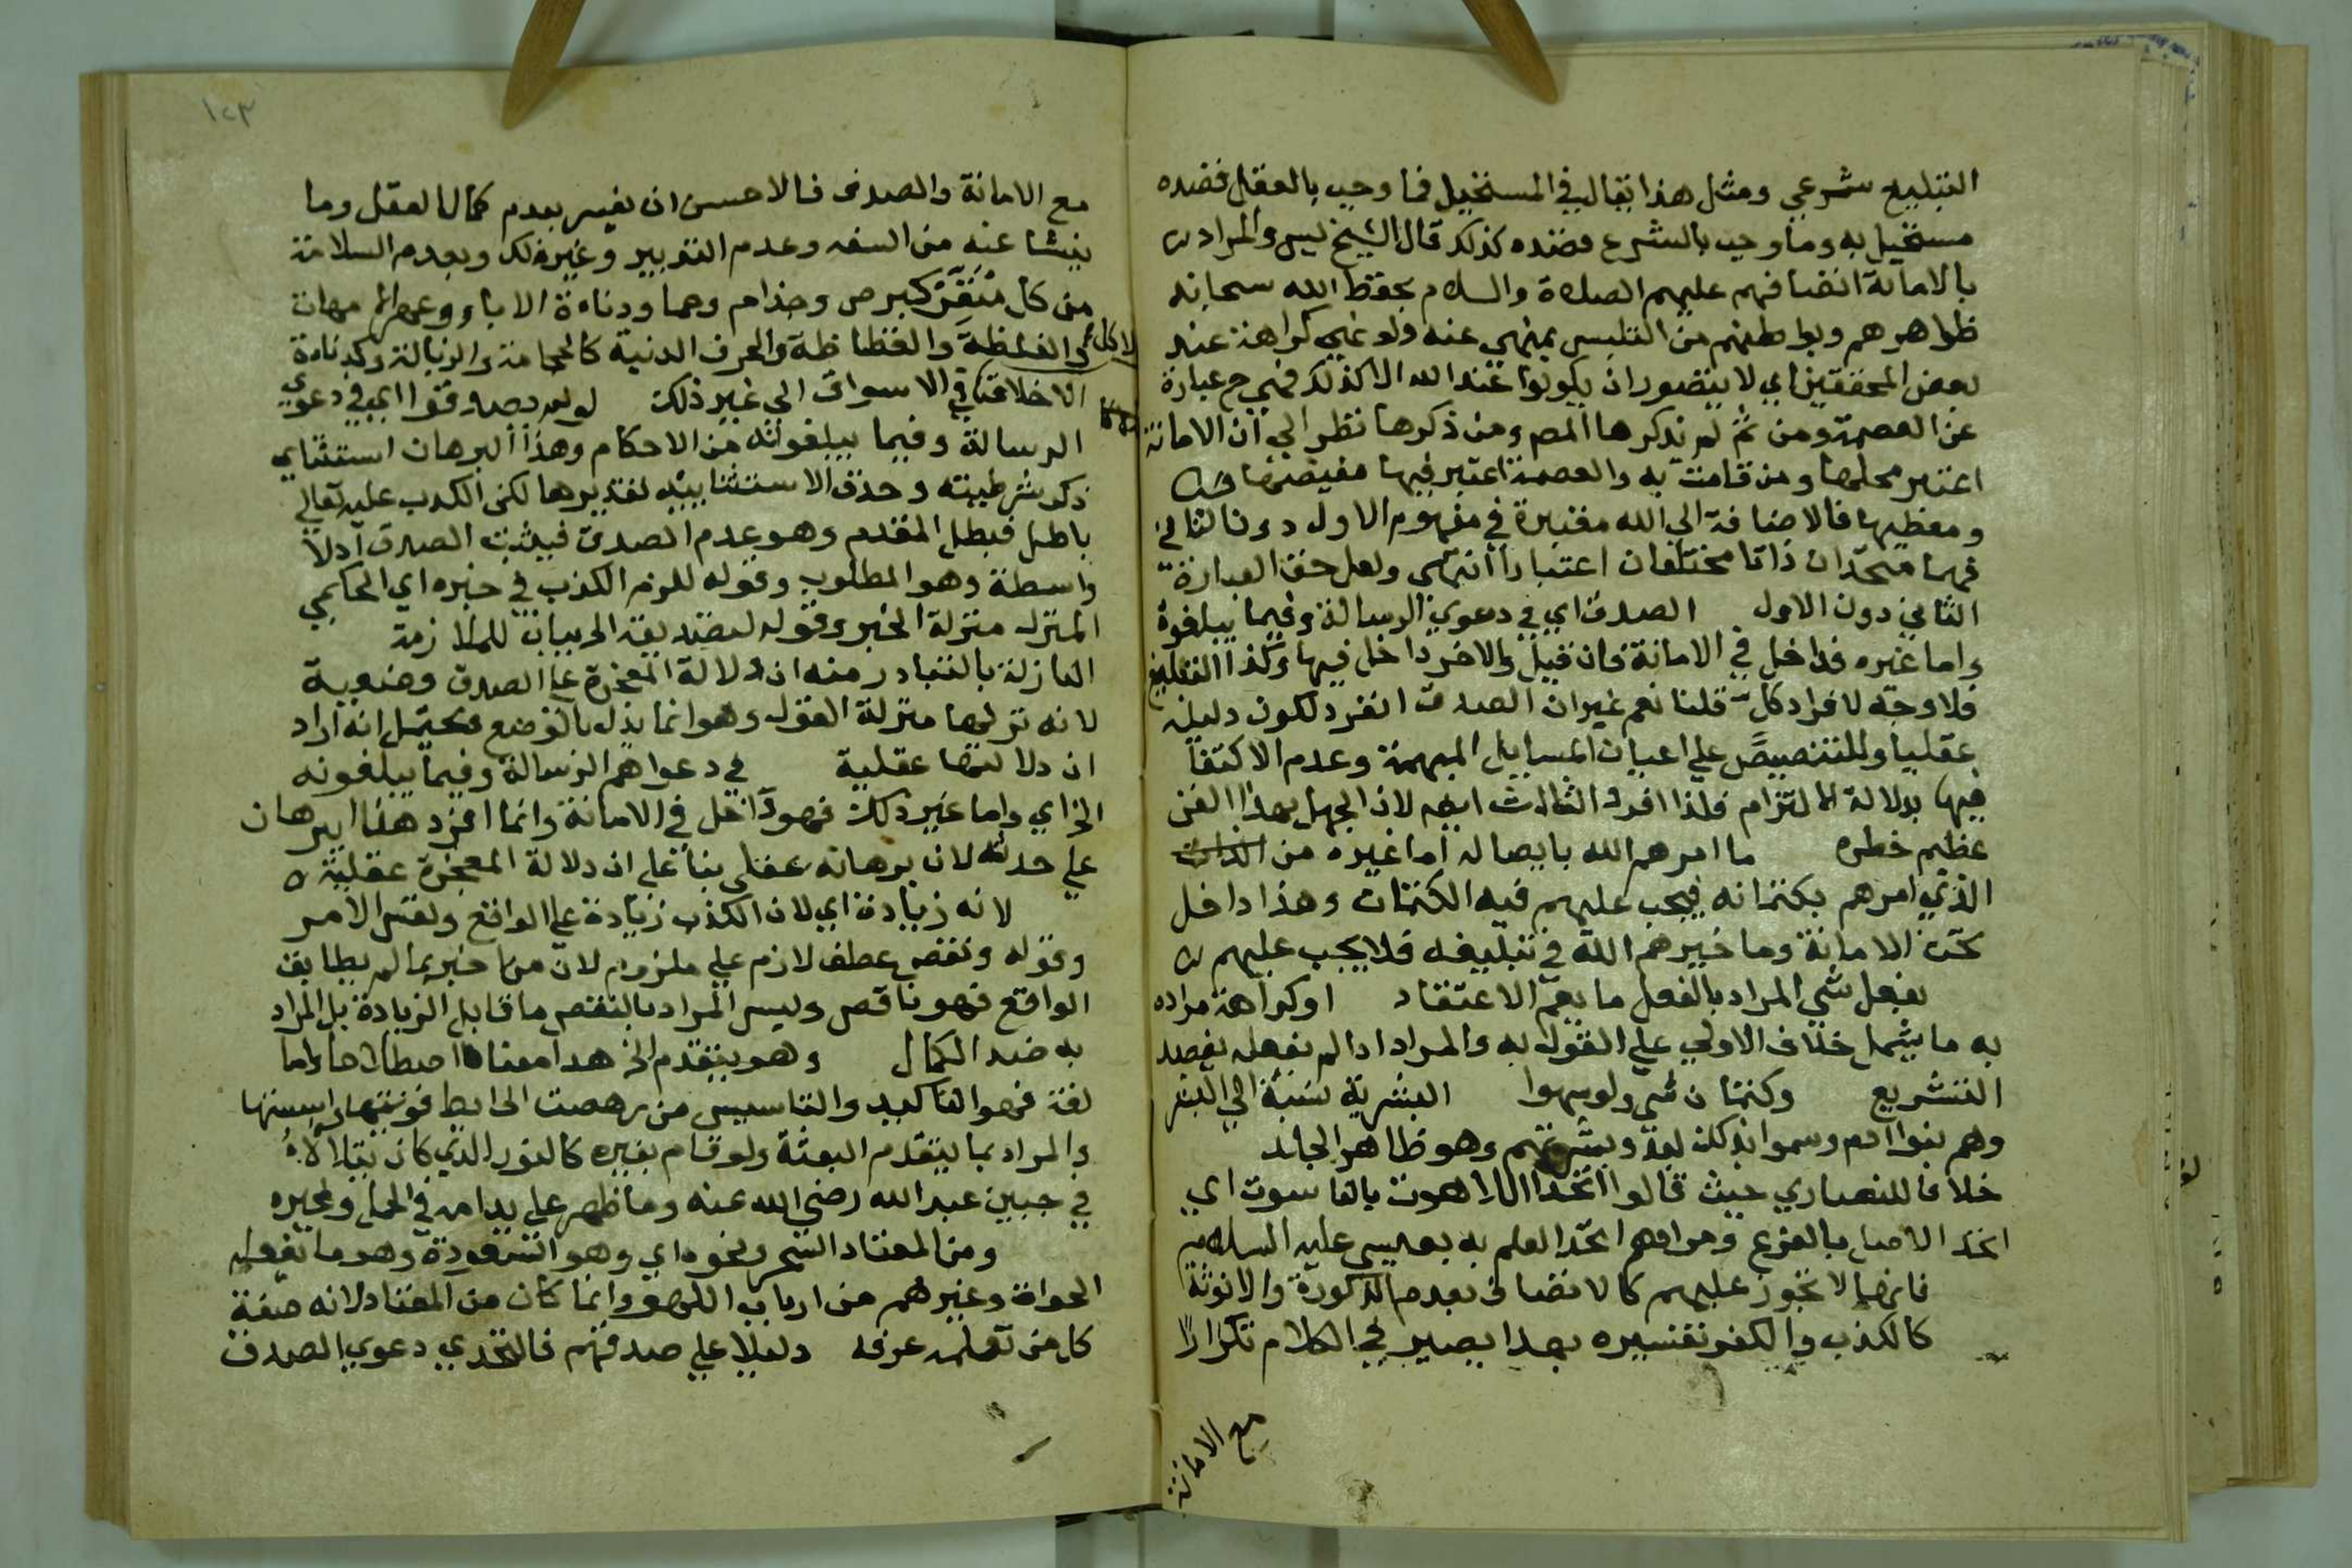 التبليغ شرعي ومثل هذا يقال في المستحيل فما وجب بالعقل فضده
مستحيل به وما وجب بالشرع فضده كذلك قال الشيخ يس والمراد
بالامانة اتصافهم عليهم الصلاة والسلام بحفظ الله سبحانه
ظواهرهم وبواطنهم من التلبس بمنهي عنه ولو نهي كراهة عند
بعض المحققين اي لا يتصور ان يكونوا عند الله الا كذلك فهي ح عبارة
عن العصمة ومن ثم لم يذكرها المص ومن ذكرها نظر الي ان الامانة
اعتبر محلها ومن قامت به والعصمة اعتبر فيها مفيضها
ومعطيها فالاضافة الي الله معتبرة في مفهوم الاول دون الثاني
فهما متحدان ذاتا مختلفان اعتبارا انتهى ولعل حق العبارة
الثاني دون الاول الصدق اي في دعوي الرسالة وفيما يبلغوه
واما غيره فداخل في الامانة فان قيل والاخر داخل فيها وكذا التبليغ
فلا وجه لافراد كل قلنا نعم غير ان الصدق انفرد لكون دليله
عقليا وللتنصيص علي اعيان المسايل المبهمة وعدم الاكتفا
فيها بدلالة الالتزام فلذا افرد الثالث ايضا لان الجهل بهذا الفن
عظيم خطره ما امرهم الله بايصاله اما غيره من
الذي امرهم بكتمانه فيجب عليهم فيه الكتمان وهذا داخل
تحت الامانة وما خيرهم الله في تبليغه فلا يجب عليهم
بفعل شي المراد بالفعل ما يعم الاعتقاد او كراهة مراده
به ما يشمل خلاف الاولي علي القول به والمراد اذا لم نفعله بقصد
التشريع وكتمان شي ولو سهوا البشرية نسبة الي البشر
وهم بنوا ادم وسموا بذلك لبدو بشرتهم وهو ظاهر الجلد
خلافا للنصاري حيث قالوا اتحد اللاهوت بالناسوت اي
اتحد الاصل بالفرع ومرادهم اتحد العلم به بعيسي عليه السلام
فانها لا تجوز عليهم كالاتصاف بعدم الذكورة والانوثة
كالكذب والكفر تفسيره بهذا يصير في الكلام تكرارا
مع الامانة
١٢٣
مع الامانة والصدق فالاحسن ان يفسر بعدم كمال العقل وما
ينشا عنه من السفه وعدم التدبير وغير ذلك وبعدم السلامة
من كل منفر كبرص وجذام وعما ودناءة الاباء وعهر الامهات
والغلظة والفظاظة والحرف الدنية كالحجامة والزبالة وكدناءة
الاخلاق في الاسواق الي غير ذلك لو لم يصدقوا اي في دعوي
الرسالة وفيما يبلغونه من الاحكام وهذا البرهان استثناي
ذكر شرطيته وحذف الاستثنايية تقديرها لكن الكذب عليه تعالي
باطل فبطل المقدم وهو عدم الصدق فيثبت الصدق اذ لا
واسطة وهو المطلوب وقوله للزم الكذب في خبره اي الحكمي
المنزل منزلة الخبر وقوله لتصديقه الخ بيان للملازمة
النازلة بالتبادر منه ان دلالة المعجزة علي الصدق وضعية
لانه نزلها منزلة القول وهو انما يدل بالوضع فيحتمل انه اراد
ان دلالتها عقلية في دعواهم الرسالة وفيما يبلغونه
الخ اي واما غير ذلك فهو داخل في الامانة وانما افرد هذا البرهان
علي حدته لان برهانه عقلي بنا علي ان دلالة المعجزة عقلية
لانه زيادة اي لان الكذب زيادة علي الواقع ونفس الامر
وقوله ونقص عطف لازم علي ملزوم لان من اخبر بما لم يطابق
الواقع فهو ناقص وليس المراد بالنقص ما قابل الزيادة بل المراد
به ضد الكمال وهو يتقدم الخ هذا معناه اصطلاحا واما
لغة فهو التاكيد والتاسيس من رهصت الحايط قويتها واسستها
والمراد بما يتقدم البعثة ولو قام بغيره كالنور الذي كان يتلالا
في جبين عبد الله رضي الله عنه وما ظهر علي يد امه في الحمل ولغيره
ومن المعتاد السحر ونحوه اي وهو الشعوذة وهو ما تفعله
الحواة وغيرهم من ارباب اللهو وانما كان من المعتاد لانه صنعة
كل من تعلمه عرفه دليلا علي صدقهم فالتحدي دعوي الصدق